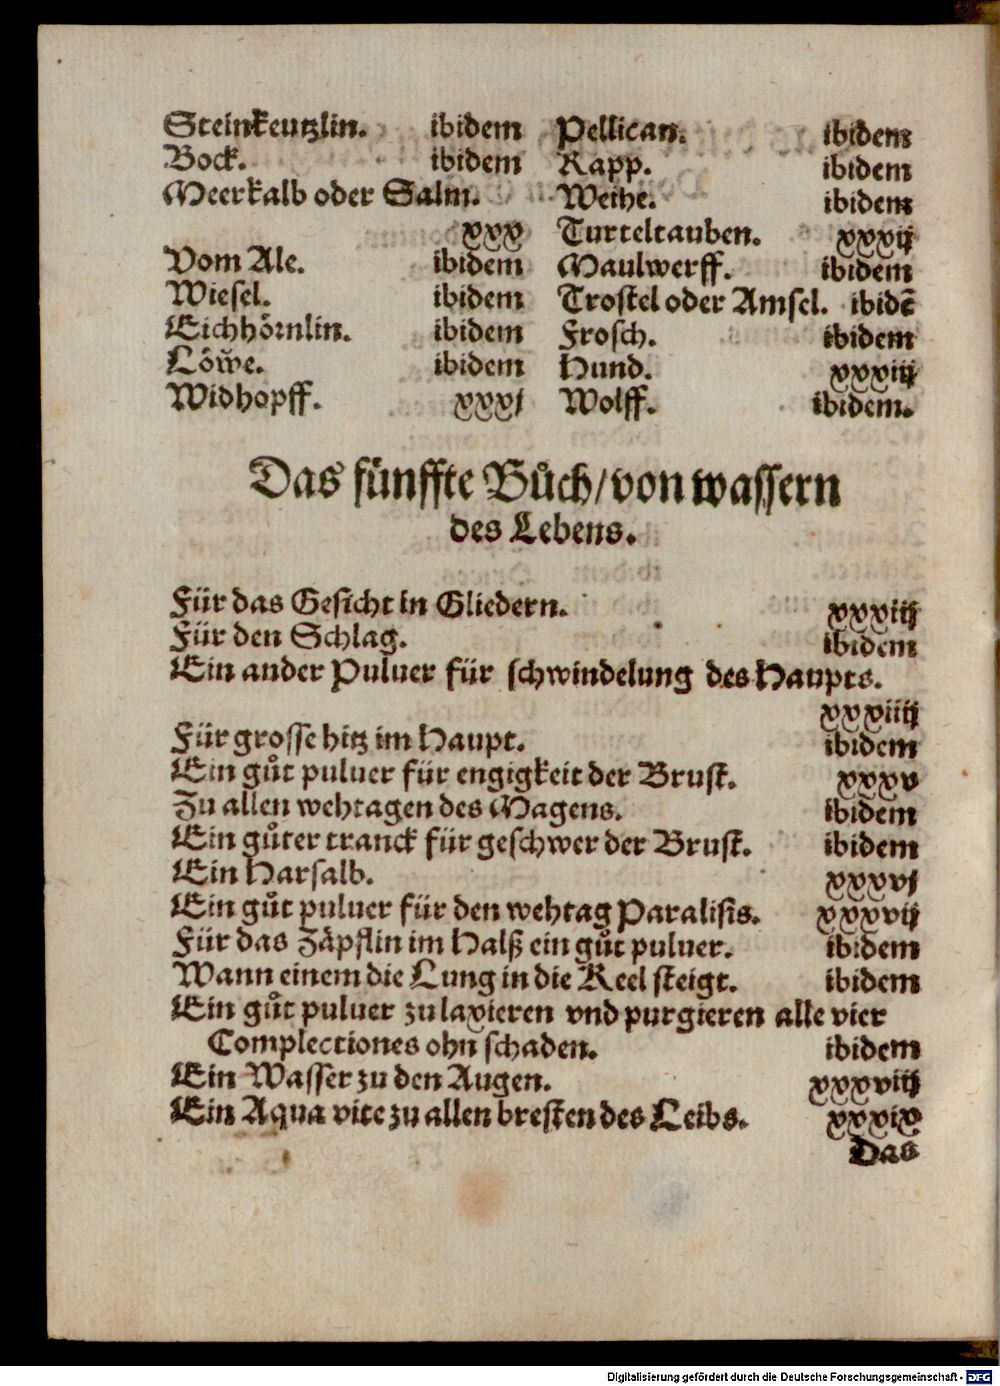 Steinkeutzlin. ibidem
Bock. ibidem
Meerkalb oder Salm.
xxx
Vom Ale. ibidem
Wiesel. ibidem
Eichhörnlin. ibidem
Löwe. ibidem
Widhopff. xxxj
Pellican. ibidem
Rapp. ibidem
Weihe. ibidem
Turteltauben. xxxij
Maulwerff. ibidem
Trostel oder Amsel. ibidē
Frosch. ibidem
Hund. xxxiij
Wolff. ibidem.
Das fünffte Bůch/von wassern
des Lebens.
Für das Gesicht in Gliedern. xxxiij
Für den Schlag. ibidem
Ein ander Puluer für schwindelung des Haupts.
xxxiiij
Für grosse hitz im Haupt. ibidem
Ein gůt puluer für engigkeit der Brust. xxxv
Zu allen wehtagen des Magens. ibidem
Ein gůter tranck für geschwer der Brust. ibidem
Ein Harsalb. xxxvj
Ein gůt puluer für den wehtag Paralisis. xxxvij
Für das Zäpflin im Halß ein gůt puluer. ibidem
Wann einem die Lung in die Keel steigt. ibidem
Ein gůt puluer zu laxieren vnd purgieren alle vier
Complectiones ohn schaden. ibidem
Ein Wasser zu den Augen. xxxviij
Ein Aqua vite zu allen bresten des Leibs. xxxix
Das
Digitalisierung gefördert durch die Deutsche Forschungsgemeinschaft - DFG